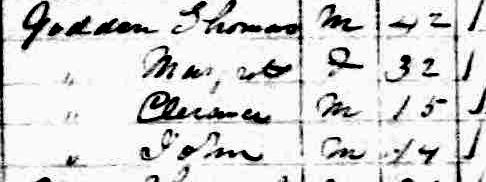 Godden Thomas M 42 1
" Margret F 32 1
" Clerance M 15 1
" John M 14 1